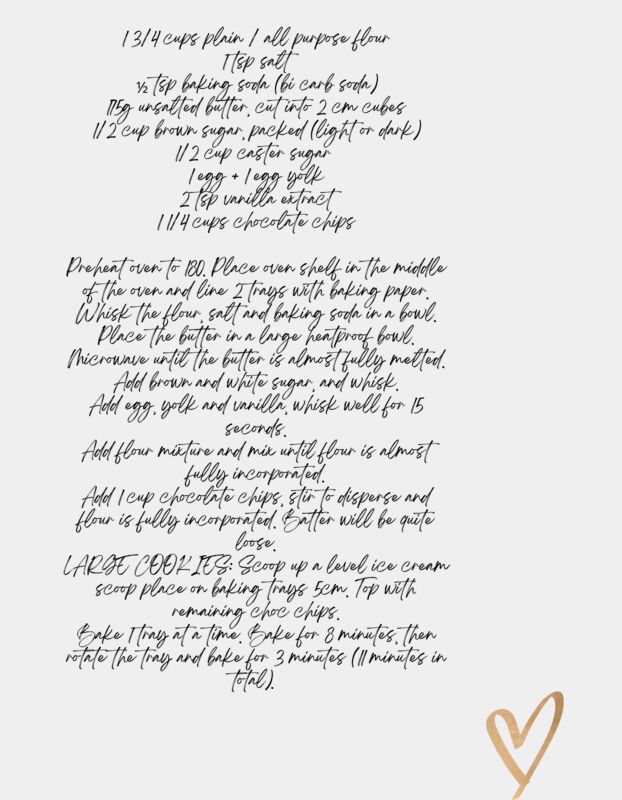 1 3/4 cups plain / all purpose flour
1 tsp salt
½ tsp baking soda (bi carb soda)
175g unsalted butter, cut into 2 cm cubes
1/2 cup brown sugar, packed (light or dark)
1/2 cup caster sugar
1 egg + 1 egg yolk
2 tsp vanilla extract
1 1/4 cups chocolate chips
Preheat oven to 180. Place oven shelf in the middle
of the oven and line 2 trays with baking paper.
Whisk the flour, salt and baking soda in a bowl.
Place the butter in a large heatproof bowl.
Microwave until the butter is almost fully melted.
Add brown and white sugar, and whisk.
Add egg, yolk and vanilla, whisk well for 15
seconds.
Add flour mixture and mix until flour is almost
fully incorporated.
Add 1 cup chocolate chips, stir to disperse and
flour is fully incorporated. Batter will be quite
loose.
LARGE COOKIES: Scoop up a level ice cream
scoop place on baking trays 5cm. Top with
remaining choc chips.
Bake 1 tray at a time. Bake for 8 minutes, then
rotate the tray and bake for 3 minutes (11 minutes in
total).